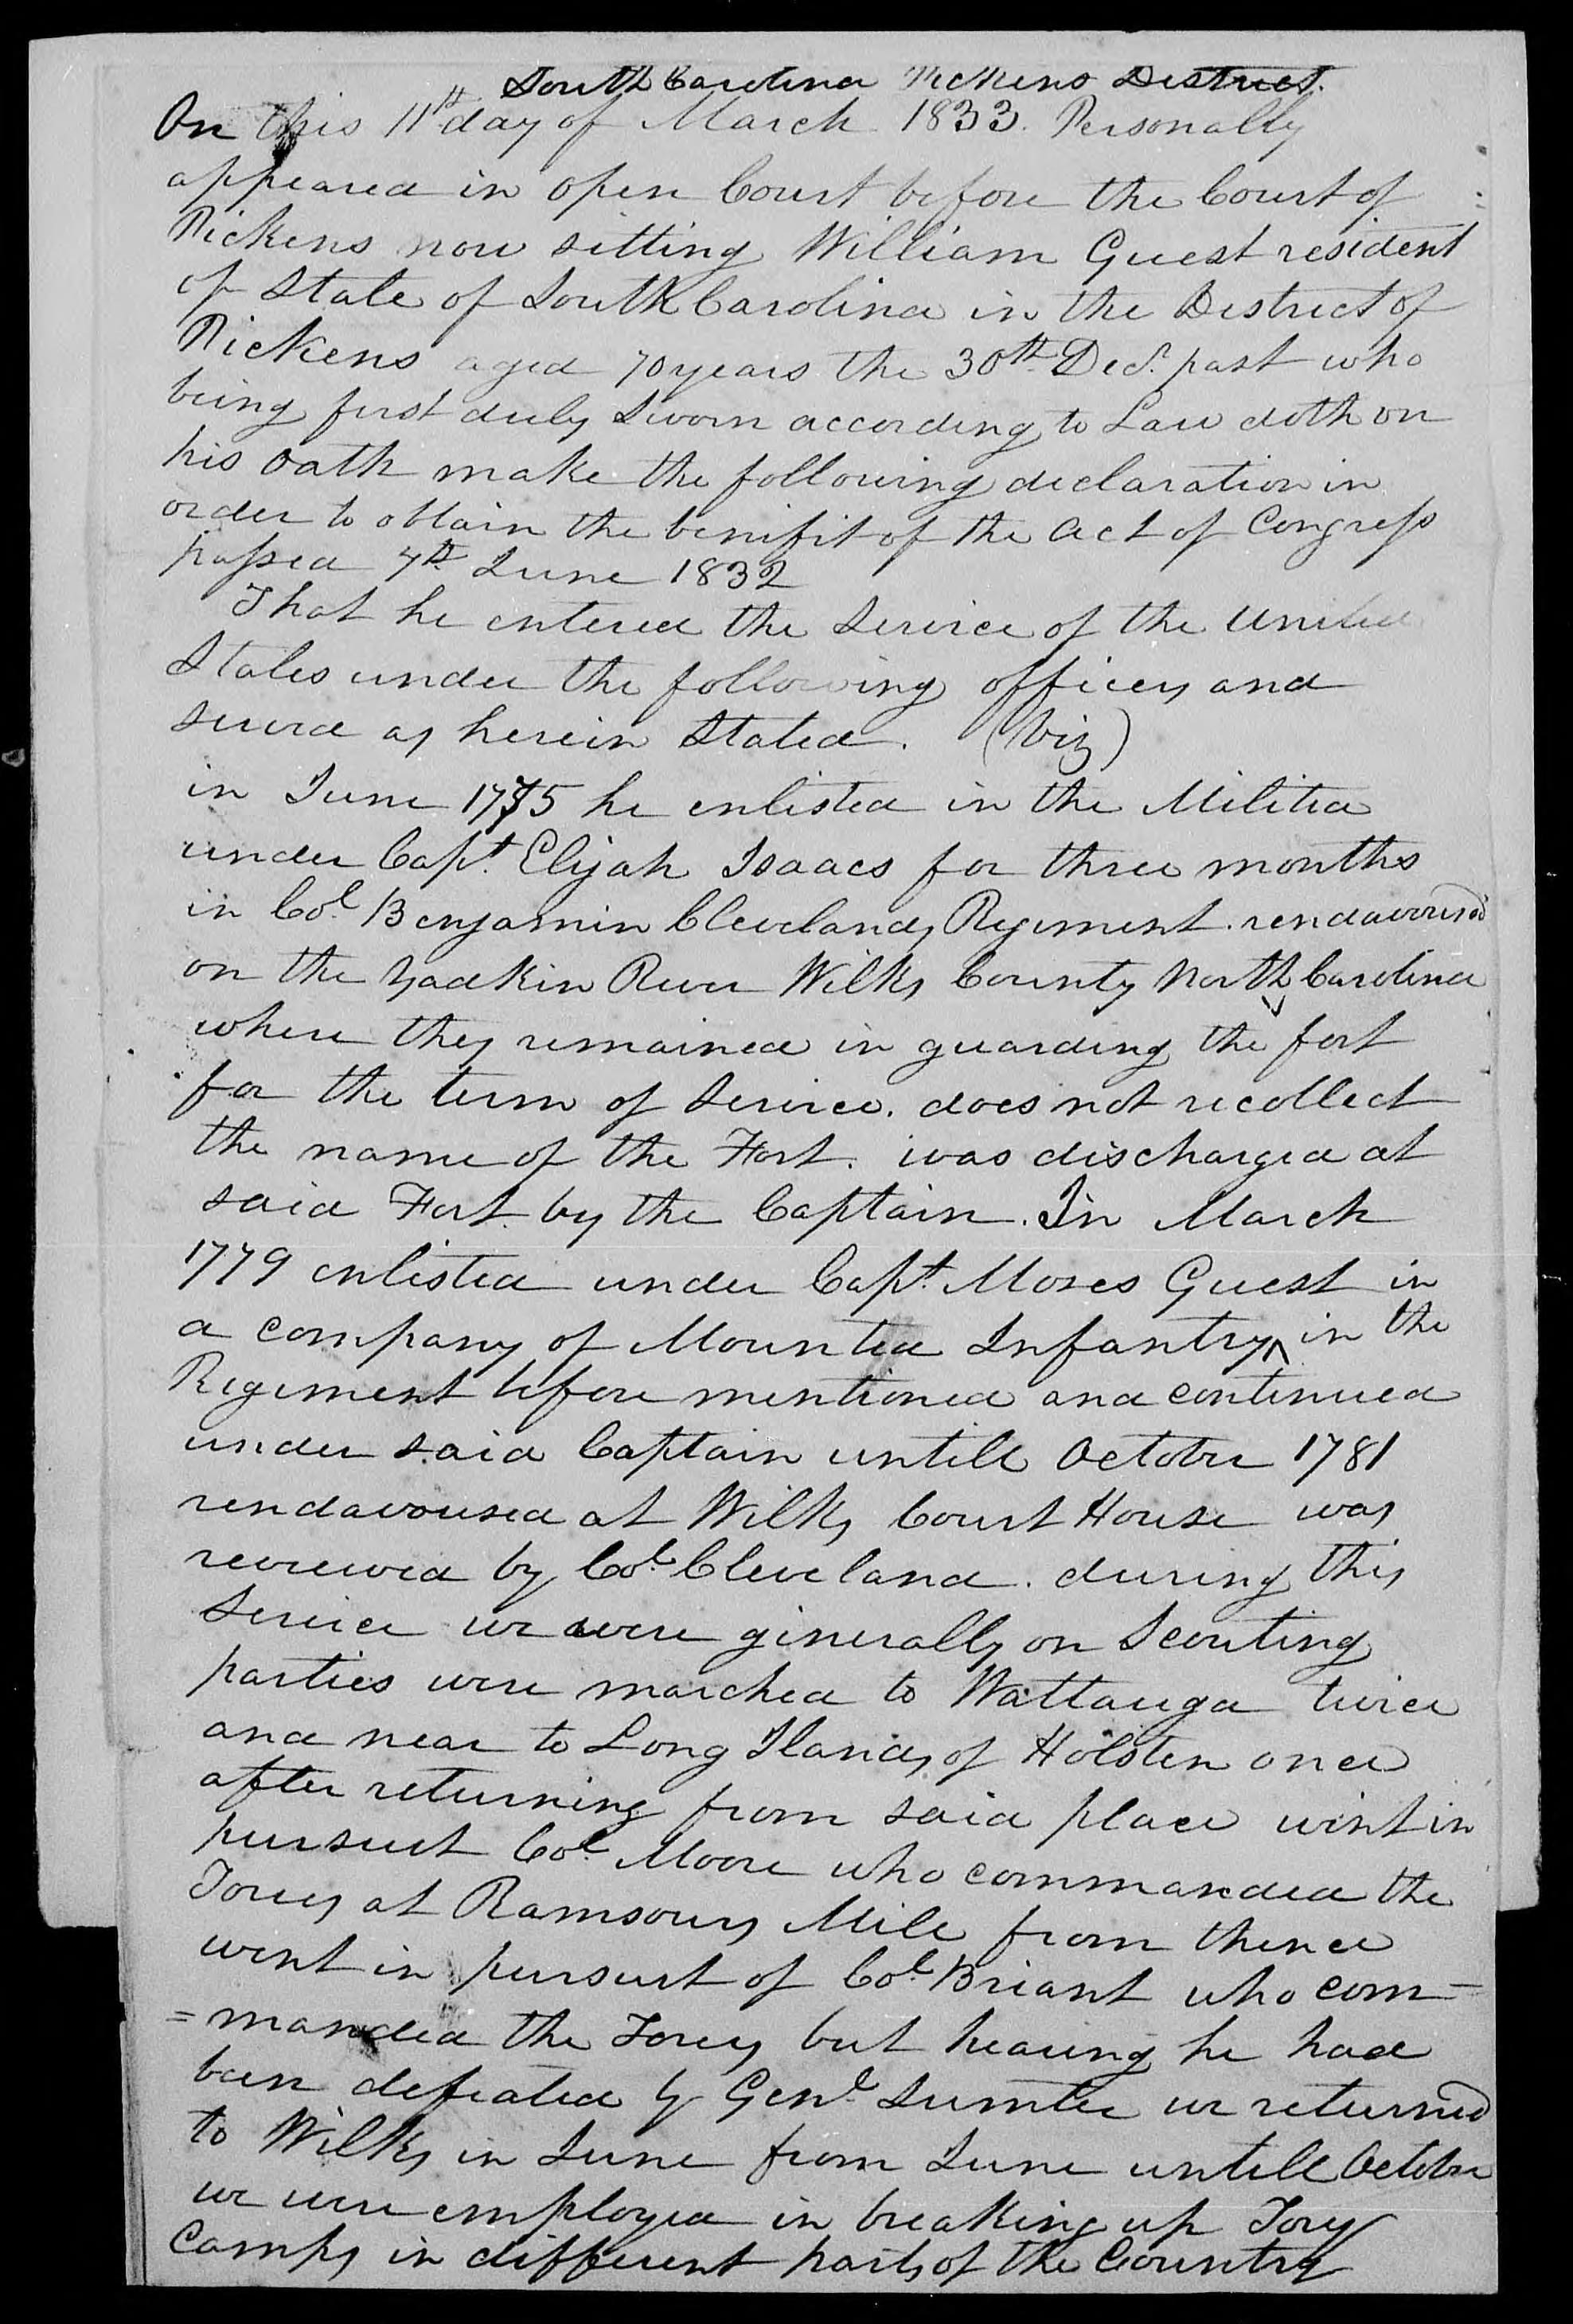 South Carolina Pickens District.
On this 11th day of March 1833. Personally
appeared in open Court before the Court of
Pickens now sitting William Guest resident
of State of South Carolina in the District of
Pickens aged 70 years the 30th Decr. past who
being first duly Sworn according to Law doth on
his oath make the following declaration in
order to obtain the benifit of the act of Congress
passed 7th June 1832
That he entered the Service of the United
States under the following officers and
served as herein Stated. (Viz)
in June 1775 he enlisted in the Militia
under Capt. Elijah Isaacs for three months
in Col. Benjamin Clevelands Regiment. rendavoused
on the Yadkin River Wilks County North Carolina
where they remained in guarding the fort
for the term of Service. does not recollect
the name of the Fort. was discharged at
said Fort by the Captain. In March
1779 enlisted under Capt. Moses Guest in
a company of Mounted Infantry in the
Regiment before mentioned and continued
under said Captain untill October 1781
rendavoused at Wilks Court House was
reviewed by Col. Cleveland. during this
Service we were ginerally on Scouting
parties were marched to Wattauga twice
and near to Long Ilands of Holsten once
after returning from said place wint in
pursuit Col. Moore who commanded the
Torys at Ramsours Mill from thence
went in pursuit of Col. Briant who com=
=manded the Torys but hearing he had
been defeated by Genl. Sumter we returned
to Wilks in June from June untill October
we were employed in breaking up Tory
Camps in different parts of the Country